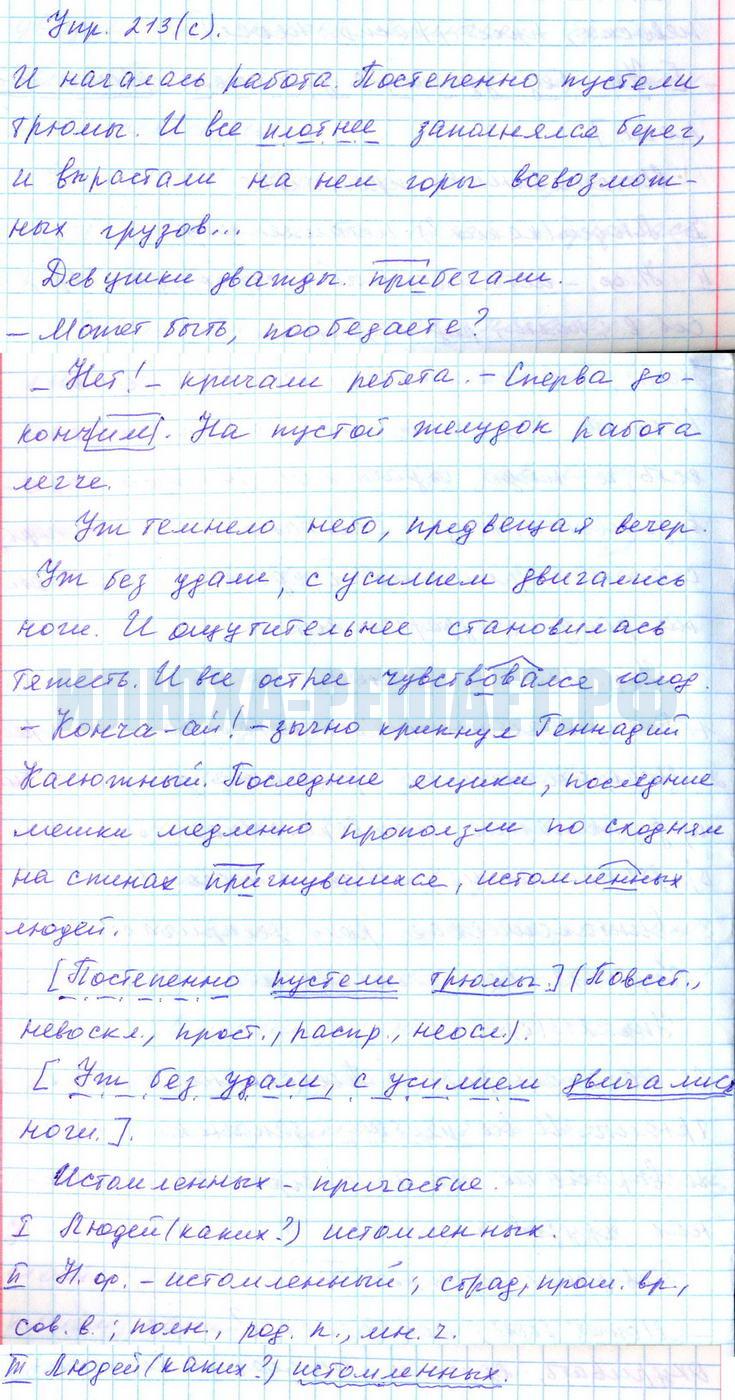 Упр. 213(с).
И началась работа. Постепенно пустели
трюмы. И все плотнее заполнялся берег,
и вырастали на нем горы всевозмож-
ных грузов...
Девушки дважды прибегали.
– Может быть, пообедаете?
– Нет! – кричали ребята. – Сперва до-
кончим. На пустой желудок работа
легче.
Уж темнело небо, предвещая вечер.
Уж без удали, с усилием двигались
ноги. И ощутительнее становилась
тяжесть. И все острее чувствовался голод.
– Конча-ай! – зычно крикнул Геннадий
Калюжный. Последние ящики, последние
мешки медленно проползли по сходням
на спинах пригнувшихся, истомленных
людей.
[Постепенно пустели трюмы.] (Повест.,
невоскл., прост., распр., неосл.).
[Уж без удали, с усилием двигались
ноги.].
Истомленных – причастие.
I Людей (каких?) истомленных.
II Н.ф. – истомленный; страд, прош. вр.,
сов. в.; полн., род. п., мн. ч.
III Людей (каких?) истомленных.